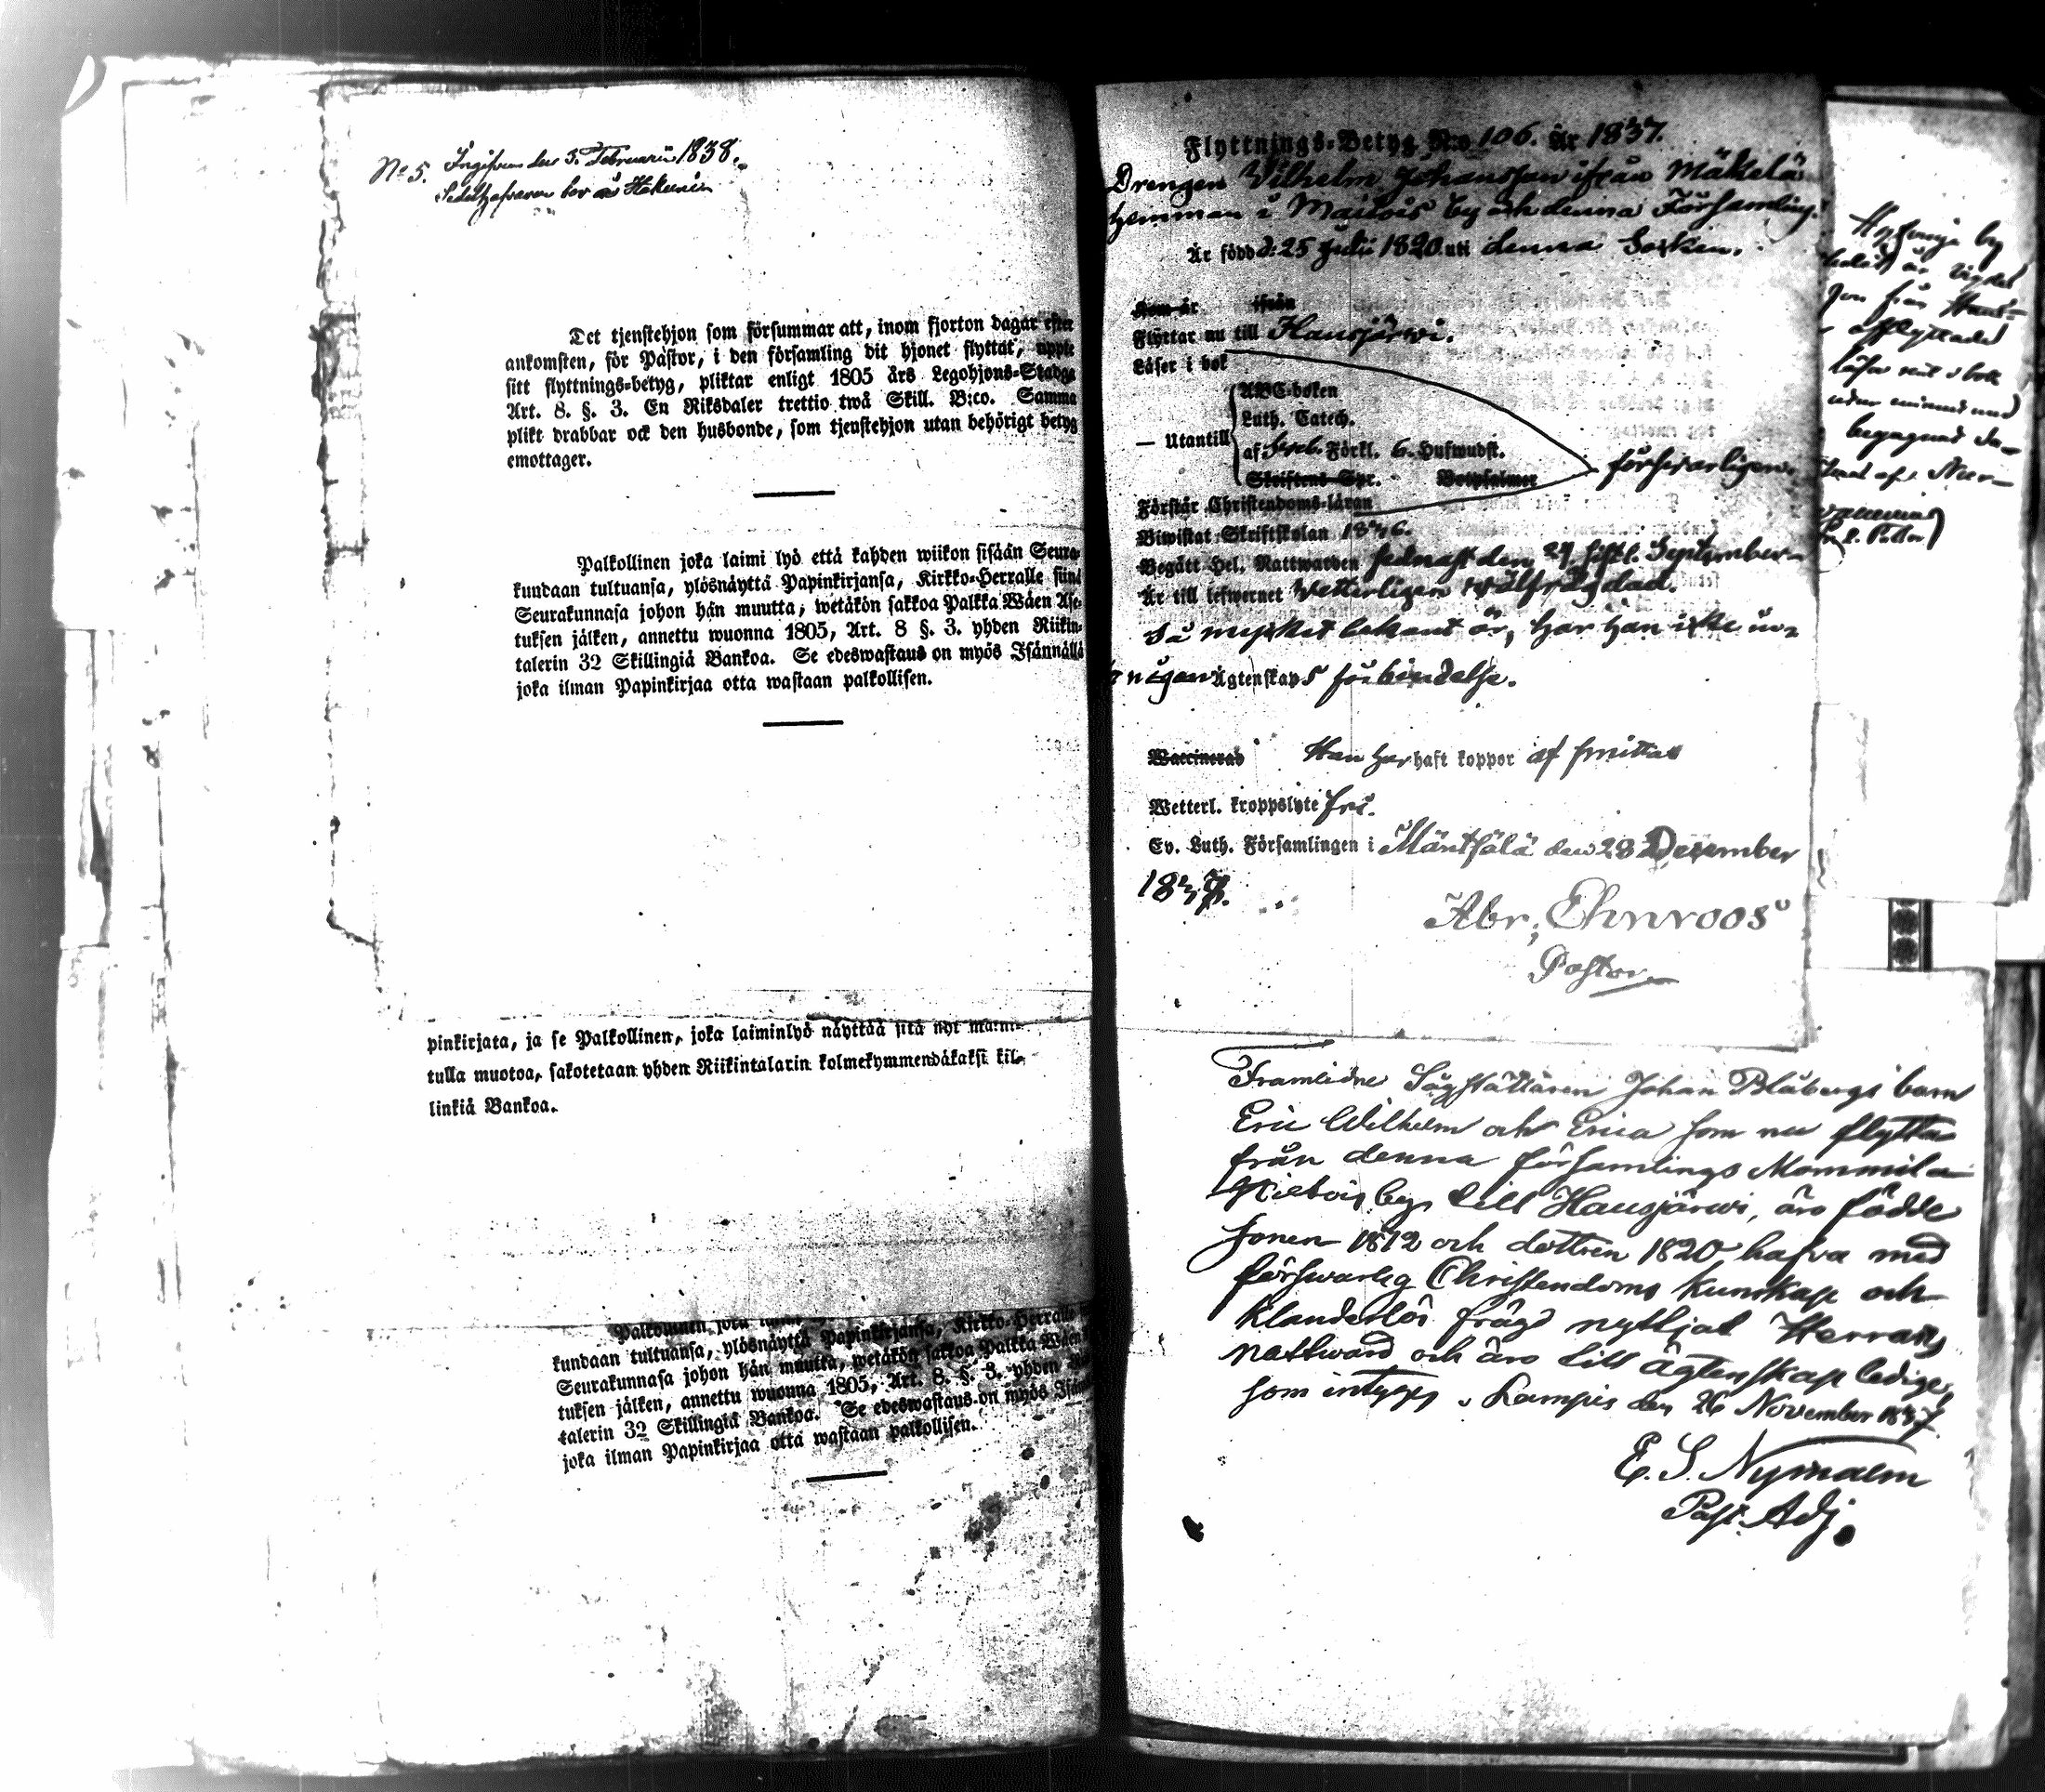 No 5. Ingifven den 3. Februarii 1838.
bor å Hakuni
Det tjenstehjon som försummar att, inom fjorton dagar efter
ankomsten, för Pastor, i den församling dit hjonet flyttat, uppte
sitt flyttnings-betyg, pliktar enligt 1805 års Legohjons-Stadga
Art. 8. §. 3. En Riksdaler trettio twå Skill. B:co. Samma
plikt drabbar ock den husbonde, som tjenstehjon utan behörigt betyg
emottager.
Palkollinen joka laimi lyö että kahden wiikon sisään Seura-
kundaan tultuansa, ylösnäyttä Papinkirjansa, Kirkko-Herralle siinä
Seurakunnasa johon hän muutta, wetäkön sakkoa Palkka Wäen Ase-
tuksen jälken, annettu wuonna 1805, Art. 8 §. 3. yhden Riikin-
talerin 32 Skillingiä Bankoa. Se edeswastaus on myös Isännällä
joka ilman Papinkirjaa otta wastaan palkollisen.
pinkirjata, ja se Palkollinen, joka laiminlyö näyttää sitä nyt mainit-
tulla muotoa, sakotetaan yhden Riikintalarin kolmekymmendäkaksi kil-
linkiä Bankoa.
Palkollinen joka
kundaan tultuansa, ylösnäyttä Papinkirjansa, Kirkko-Herralle
Seurakunnasa johon hän muutta, wetäkön sakkoa Palkka Wäen
tuksen jälken, annettu wuonna 1805, Art. 8. §. 3. yhden
talerin 32 Skillingiä Bankoa. Se edeswastaus on myös Isän
joka ilman Papinkirjaa otta wastaan palkollisen.
Flyttnings-Betyg N:o 106. År 1837.
Drengen Vilhelm Johansson ifrån Mäkelä
hemman i Maitois by och denna Församling.
Är född d. 25 Julii 1820 uti denna Socken.
Kom år ifrån
Flyttar nu till Hausjärwi.
Läser i bok
ABC-boken
Luth. Catech.
— Utantill af Sveb. Förkl. 6. Hufwudst. försvarligen.
Skriftens Spr. Botpsalmer
Förstår Christendoms-läran
Biwistat Skriftskolan 1836.
Begått Hel. Nattwarden sednast den 24 sistl. September
Är till lefwernet Vetterligen wälfrägdad.
Så mycket bekant är, har han icke in-
någon Ägtenskaps förbindelse.
Waccinerad Han har haft koppor af smittan
Wetterl. kroppslyte fri.
Ev. Luth. Församlingen i Mäntsälä den 28 December
1837.
Abr; Ehnroos
Pastor
Framlidne Sågställaren Johan Blåbergs barn
Eric Wilhelm och Erica som nu flytta
från denna församlings Mommila
by till Hausjärwi, äro födde
sonen 1812 och dottren 1820 hafva med
försvarlig Christendoms kunskap och
klanderlös frägd nyttjat Herrans
nattward och äro till ägtenskap ledige,
som intygas. Lampis den 26 November 1837.
E. S. Nymalm
Past. Adj.
by
från Haus-
afflyttade
begagnad